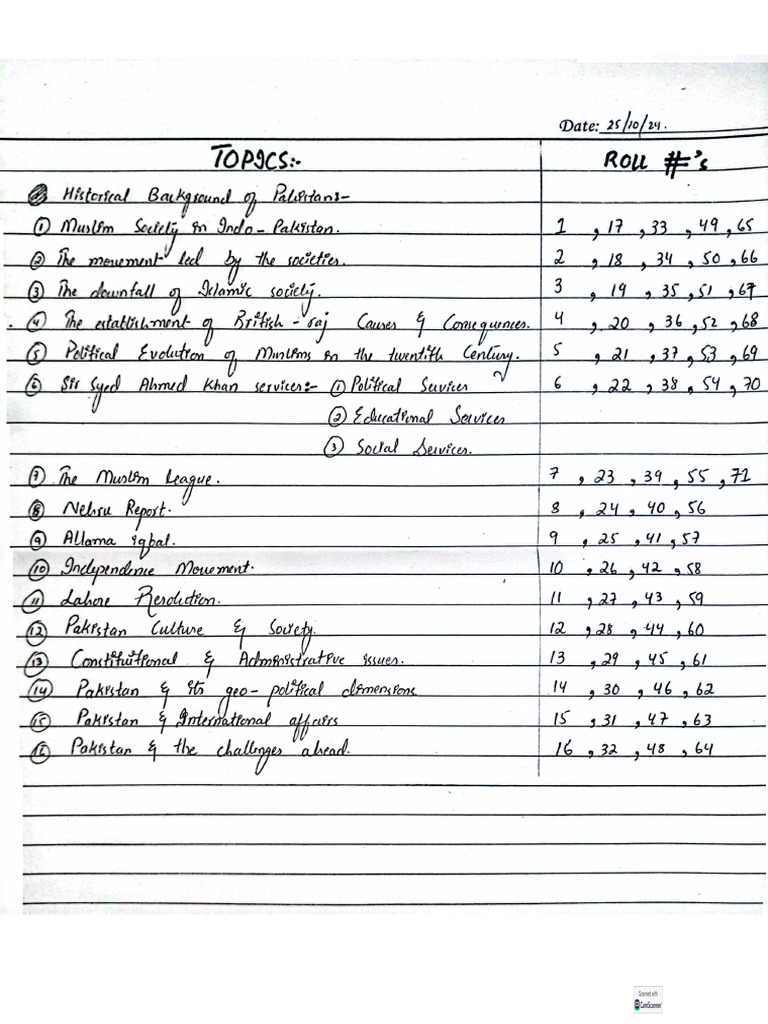 Date: 25/10/24.
TOPICS:- ROLL #'s
Historical Background of Pakistan:-
① Muslim Society in Indo-Pakistan. 1, 17, 33, 49, 65
② The movement led by the societies. 2, 18, 34, 50, 66
③ The downfall of Islamic society. 3, 19, 35, 51, 67
④ The establishment of British-raj Causes & Consequences. 4, 20, 36, 52, 68
⑤ Political Evolution of Muslims in the twentith Century. 5, 21, 37, 53, 69
⑥ Sir Syed Ahmed Khan services:- ① Political Survices 6, 22, 38, 54, 70
② Educational Services
③ Social Services.
⑦ The Muslim League. 7, 23, 39, 55, 71
⑧ Nehru Report. 8, 24, 40, 56
⑨ Allama iqbal. 9, 25, 41, 57
⑩ Independence Movement. 10, 26, 42, 58
⑪ Lahore Resolution. 11, 27, 43, 59
⑫ Pakistan Culture & Society. 12, 28, 44, 60
⑬ Constituitional & Administrative issues. 13, 29, 45, 61
⑭ Pakistan & its geo-political dimensions 14, 30, 46, 62
⑮ Pakistan & International affairs 15, 31, 47, 63
⑯ Pakistan & the challenges ahead. 16, 32, 48, 64
Scanned with
CS CamScanner